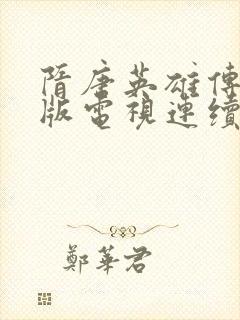 隋唐英雄傳
版電視連續
鄭華君